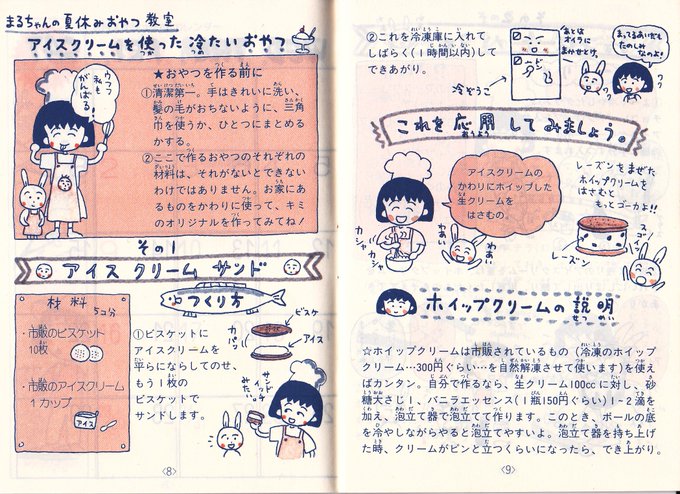 まるちゃんの夏休みおやつ教室
アイスクリームを使った冷たいおやつ
ウフフ
私も
がんばる!
★おやつを作る前に
①清潔第一。手はきれいに洗い、
髪の毛がおちないように、三角
巾を使うか、ひとつにまとめる
かする。
②ここで作るおやつのそれぞれの
材料は、それがないとできない
わけではありません。お家にあ
るものをかわりに使って、キミ
のオリジナルを作ってみてね!
その1
アイスクリームサンド
材料
5コ分
・市販のビスケット
10枚
・市販のアイスクリーム
1カップ
アイス
つくり方
①ビスケットに
アイスクリームを
平らにならしてのせ、
もう1枚の
ビスケットで
サンドします。
カパッ
ビスケ
アイス
サンド
イッチ
みたい。
〈8〉
②これを冷凍庫に入れて
しばらく(1時間以内)して
できあがり。
冷ぞうこ
あとは
オイラに
まかせとけ。
まってるあいだも
たのしみ
なのよ!
ワク
ワク
これを応用してみましょう。
アイスクリームの
かわりにホイップした
生クリームを
はさむの。
カシャ
カシャ
わあい
わあい
レーズンをまぜた
ホイップクリームを
はさむと
もっとゴーカよ!!
レーズン
スゴーイ
ホイップクリームの説明
☆ホイップクリームは市販されているもの(冷凍のホイップ
クリーム…300円ぐらい…を自然解凍させて使います)を使え
ばカンタン。自分で作るなら、生クリーム100ccに対し、砂
糖大さじ1、バニラエッセンス(1瓶150円ぐらい)1~2滴を
加え、泡立て器で泡立てて作ります。このとき、ボールの底
を冷やしながらやると泡立てやすいよ。泡立て器を持ち上げ
た時、クリームがピンと立つくらいになったら、でき上がり。
〈9〉